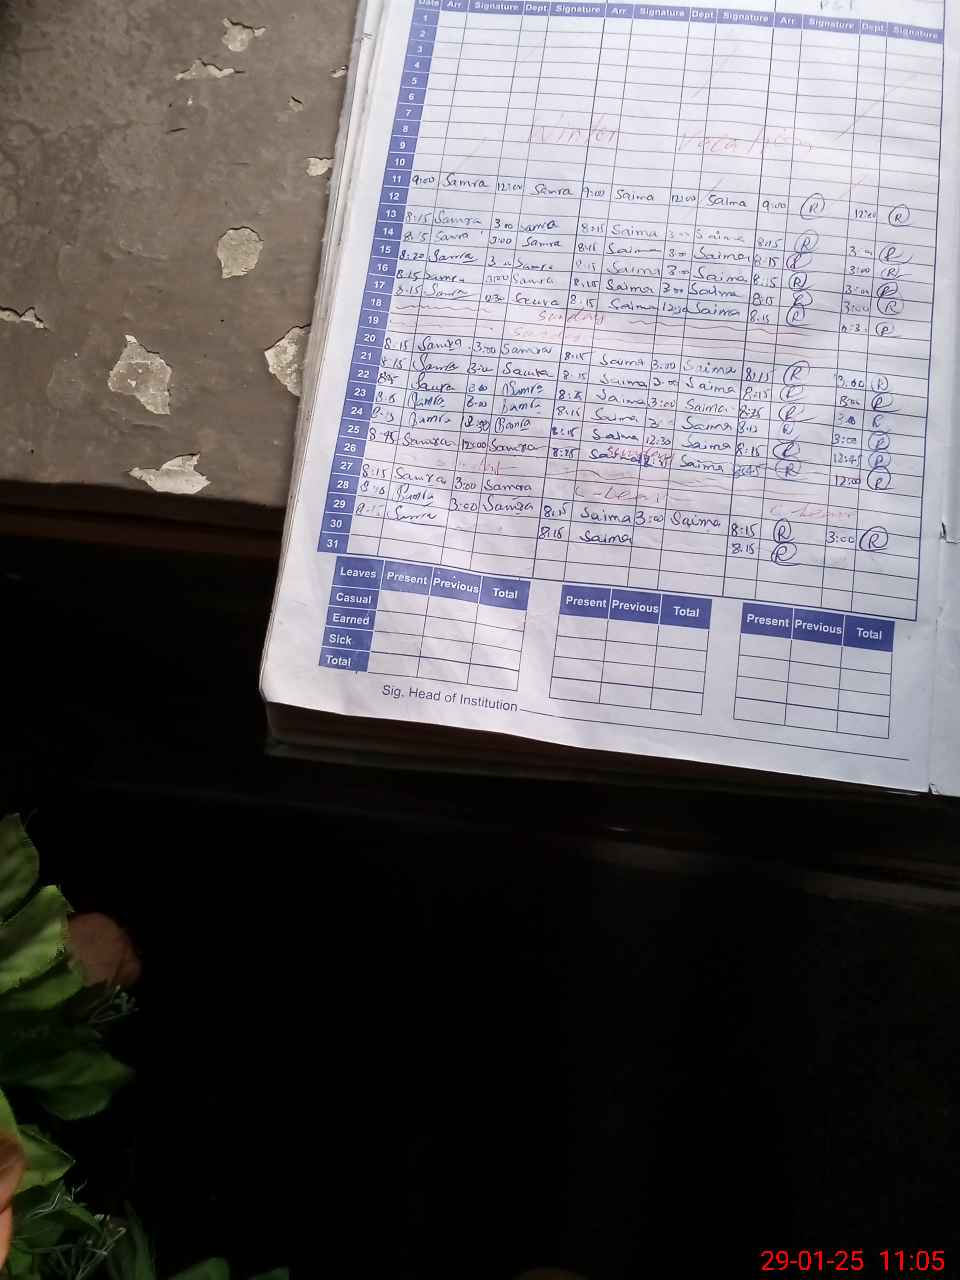 Date Arr. Signature Dept. Signature Arr. Signature Dept. Signature Arr. Signature Dept. Signature
1
2
3
4
5
6
7
8 Winter Vacation
9
10
11 9:00 Samra 12:00 Samra 9:00 Saima 12:00 Saima 9:00 R 12:00 R
12
13 8:15 Samra 3:00 Samra 8:15 Saima 3:00 Saima 8:15 R 3:00 R
14 8:15 Samra 3:00 Samra 8:15 Saima 3:00 Saima 8:15 R 3:00 R
15 8:20 Samra 3:00 Samra 8:15 Saima 3:00 Saima 8:15 R 3:00 R
16 8:15 Samra 3:00 Samra 8:15 Saima 3:00 Saima 8:15 R 3:00 R
17 8:15 Samra 8:15 Saima 12:30 Saima 8:15 R R
18 Sunday
19 Sunday
20 8:15 Samra 3:00 Samra 8:15 Saima 3:00 Saima 8:15 R 3:00 R
21 8:15 Samra 3:00 Samra 8:15 Saima 3:00 Saima 8:15 R 3:00 R
22 Samra 3:00 Samra Saima 3:00 Saima R 3:00 R
23 Samra 3:00 Samra 8:15 Saima Saima R 3:00 R
24 Samra 12:30 Samra 8:15 Saima 12:30 Saima 8:15 R 12:45 R
25 8:45 Samra 12:00 Samra Saima Saima 8:45 R 12:00 R
26 Sunday
27 8:15 Samra 3:00 Samra C-Leave C-Leave
28 Samra 3:00 Samra 8:15 Saima 3:00 Saima 8:15 R 3:00 R
29 8:15 Samra 8:15 Saima 8:15 R
30
31
Leaves Present Previous Total Present Previous Total Present Previous Total
Casual
Earned
Sick
Total
Sig. Head of Institution
29-01-25 11:05